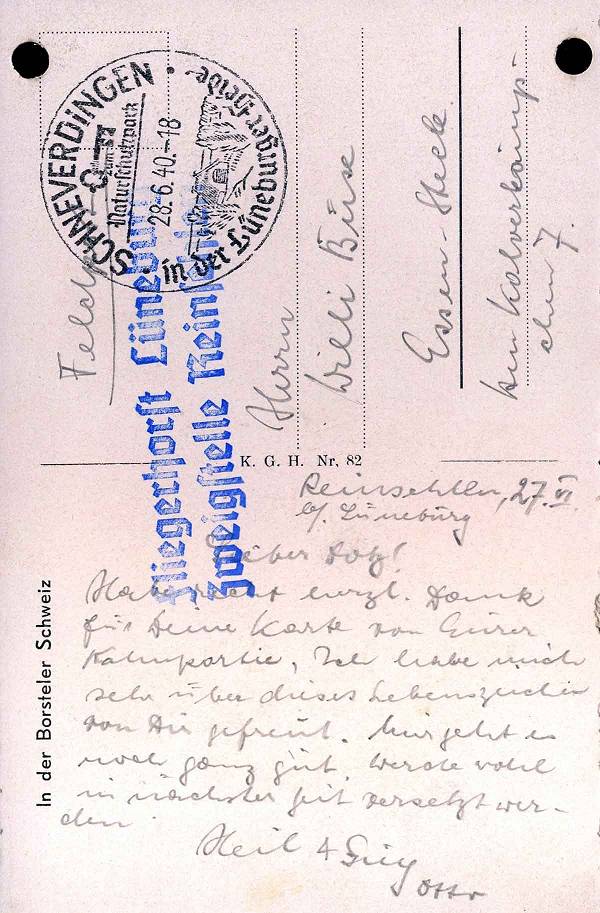 SCHNEVERDINGEN
zum
Naturschutzpark
28.6.40.-18
in der Lüneburger Heide
Fliegerhorst Lüneburg
Zweigstelle
Herrn
Willi Büse
Essen-Steele
K. G. H. Nr. 82
In der Borsteler Schweiz
Reinsehlen, 27. VI
b/. Lüneburg
Lieber
Habe recht herzl. Dank
für Deine Karte von Eurer
Kahnpartie, Ich habe mich
sehr über dieses Lebenszeichen
von Dir gefreut. Mir geht es
noch ganz gut, werde wohl
in nächster Zeit versetzt wer-
den.
Heil
Otto